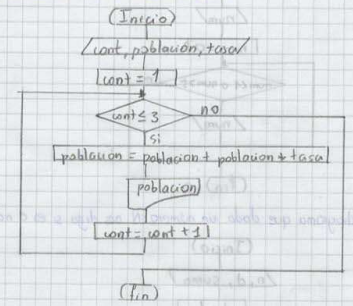 (Inicio)
cont, población, tasa
cont = 1
cont ≤ 3
no
si
poblacion = poblacion + poblacion * tasa
poblacion
cont = cont + 1
(fin)